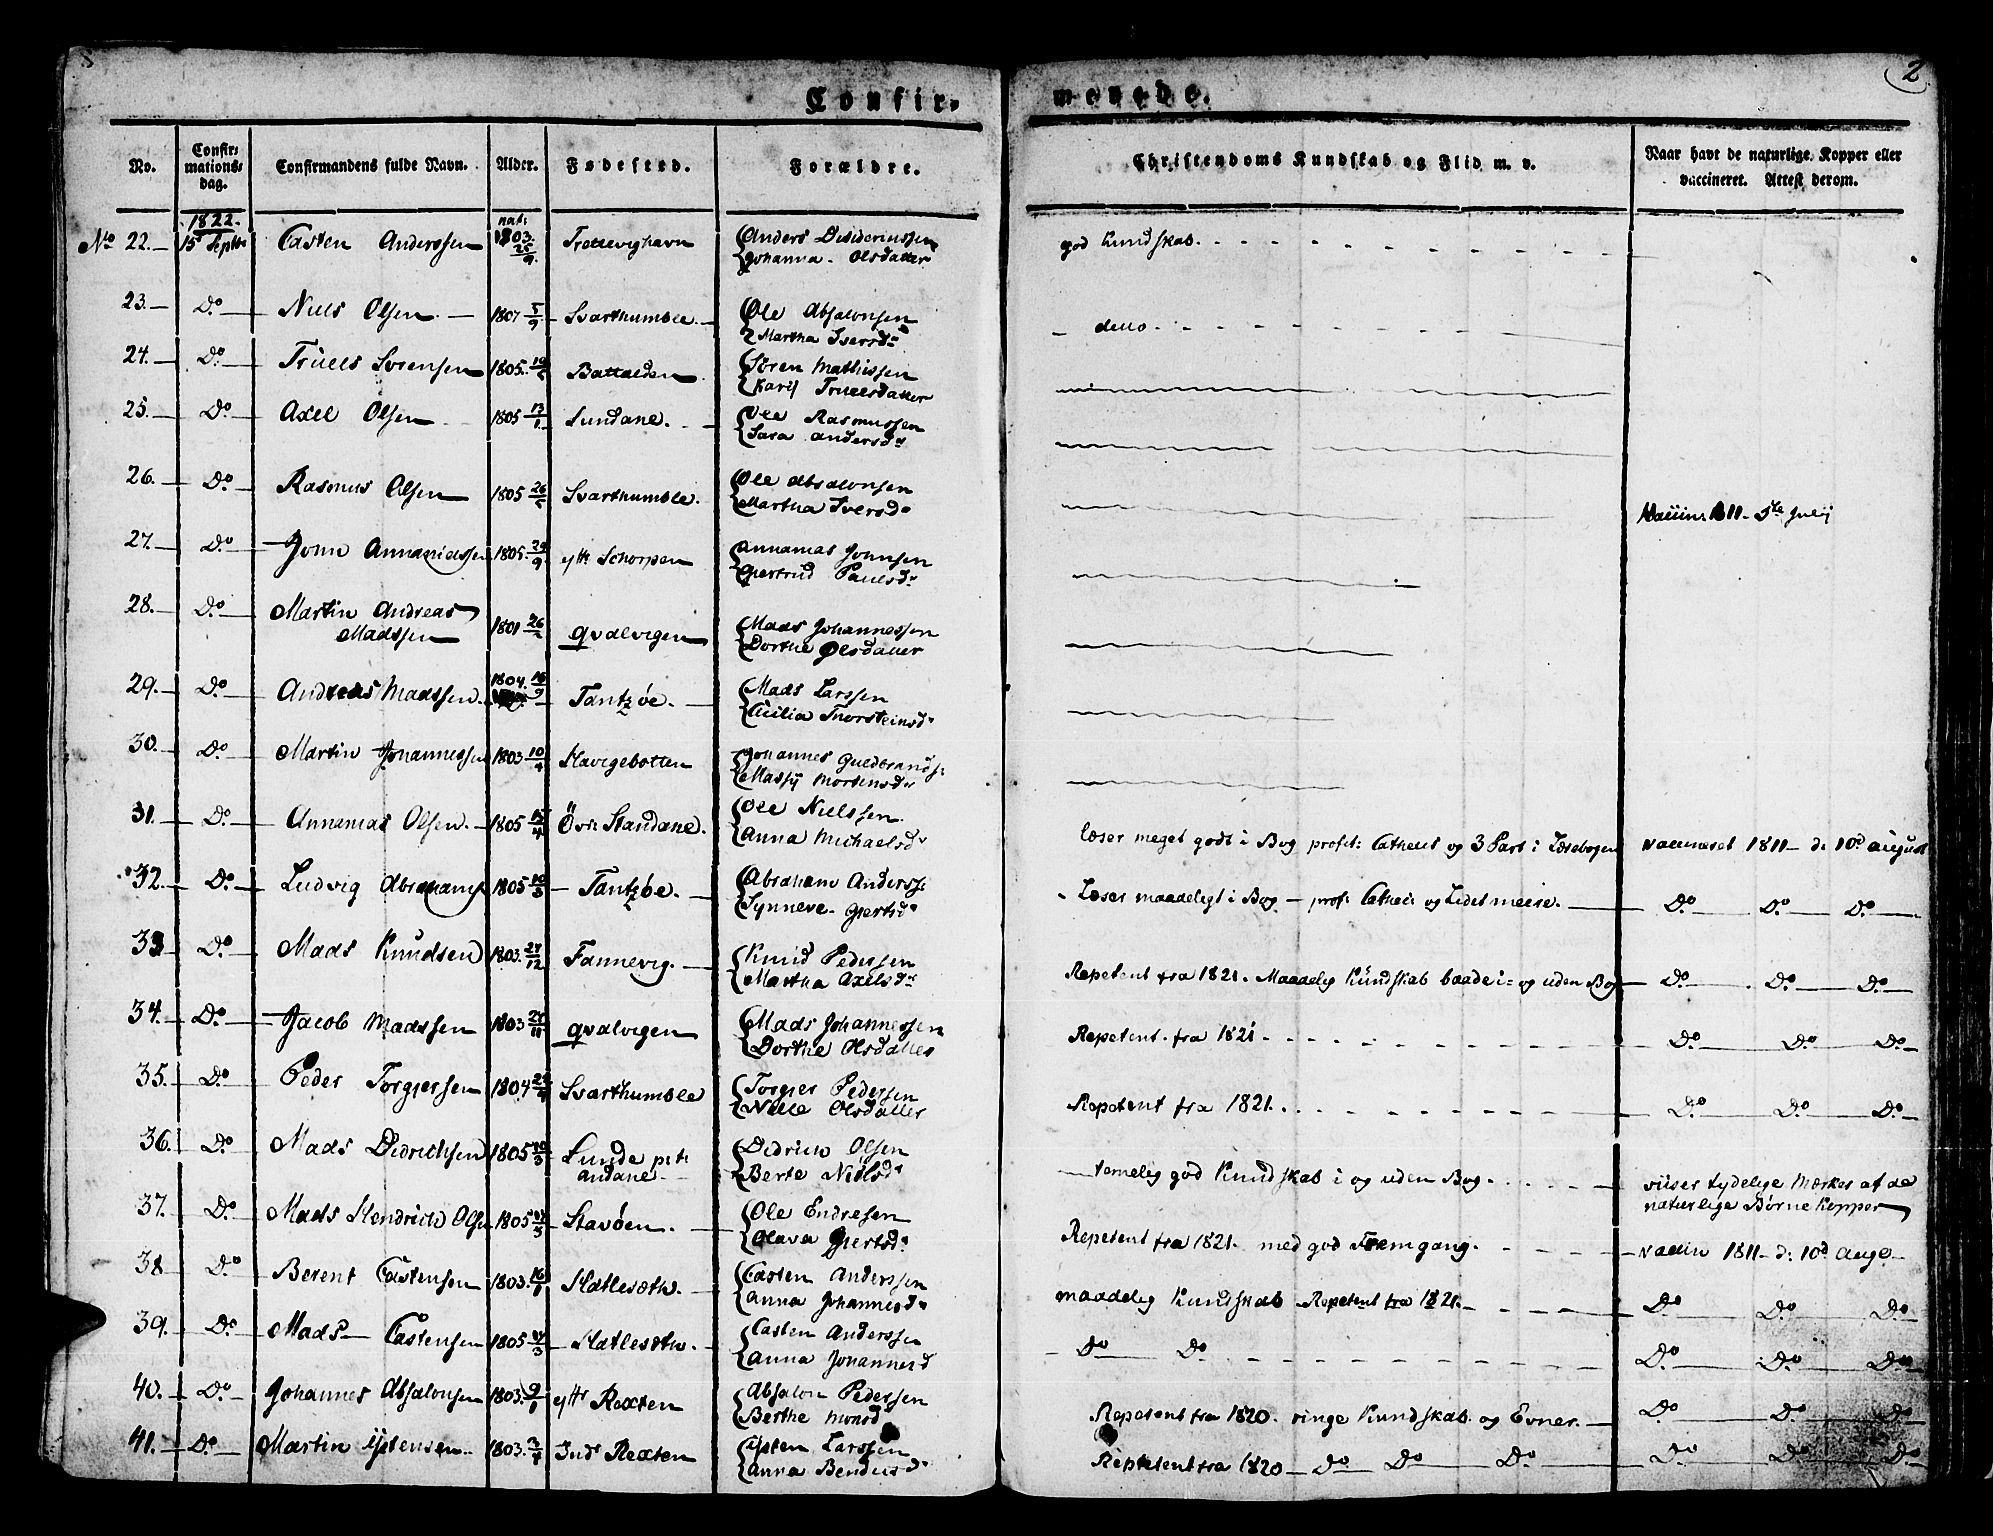 2
Confir- merede.
No. Confirmations-dag. Confirmandens fulde Navn. Alder. Fødested. Forældre. Christendoms Kundskab og Flid m. v. Naar havt de naturlige Kopper eller vaccineret. Attest derom.
1822. nat:
No 22. 15 Septbr Casten Anderssen 1803 25/9 Trettevighavn Anders Desideriussen Johanna Olsdatter god Kundskab.
23. Do Niels Olsen 1807 5/9 Svarthumble Ole Absalonsen Martha Iversdr detto
24. Do Truels Sørensen 1805 Battalden Søren Mathissen Kari Truelsdatter
25. Do Axel Olsen 1805 13/1 Sundane. Ole Rasmussen Sara Andersdr
26. Do Rasmus Olsen 1805 Svarthumble. Ole Absalonsen Martha Iversdr Vaccin: 1811 5te Julij
27. Do John Annaniassen 1805 29/9 ytt: Schorpen Annanias Johnsen Giertrud Paulsdr
28. Do Martin Andreas Madssen 1801 Qvalvigen Mads Johannessen Dorthe Olsdatter
29. Do Andreas Madssen 1804. 16/9 Tantzøe. Mads Larssen Cicilia Thorsteinsdr
30. Do Martin Johannessen 1803 10/4 Havigebotten Johannes Guldbrands: Massij Mortensdr
31. Do Annanias Olsen 1805 15/4 Øvr: Standane. Ole Nielssen Anna Michaelsdr læser meget godt i Bog profit: Cathecis og 3 Part i Læsebogen vaccineret 1811 d: 10d august
32. Do Ludvig Abrahams 1805 10/3 Tantzøe. Abraham Anderss: Synneve Giertsdr Læser maadeligt i Bog prof: Cathec: og Lidet meere. Do Do Do
33 Do Mads Knudsen 1803. 27/12 Fannevig. Knud Pedersen Martha Axelsdr Repetent fra 1821. Maadelig Kundskab baade i- og uden Bog Do Do Do
34. Do Jacob Madssen 1803 27/11 Qvalvigen Mads Johannessen Dorthe Olsdatter Repetent fra 1821 Do Do Do
35. Do Peder Torgiersen 1804 Svarthumble Torgier Pedersen Nille Olsdatter Repetent fra 1821. Do Do Do
36. Do Mads Didrichsen 1805 Lunde andane Didrich Olsen Berte Nielsdr temelig god Kundskab i og uden Bog. viiser tydelige Mærker af de naturlige Børne Kopper
37. Do Mads Hendrich Olsen 1805 Stavøen. Ole Endresen Olava Giertsdr Repetent fra 1821. med god Fremgang. vaccin 1811 d: 10d Aug.
38 Do Berent Castensen 1803. 16/1 Hatlesæth. Casten Anderssen Anna Johannesdr maadelig Kundskab Repetent fra 1821. Do Do Do
39. Do Mads Castensen 1805 Hatlesæth. Casten Anderssen Anna Johannesd Do Do Do Do Do
40. Do Johannes Absalonsen 1803. 9/1 ytt: Rexten Absalon Pedersen Berthe Monsd Repetent fra 1820. ringe Kundskab og Evner. Do Do Do
41. Do Martin Ijstensen 1803. Ind: Rexten Ijsten Larssen Anna Bendixd Repetent fra 1820 Do Do Do Do Do Do